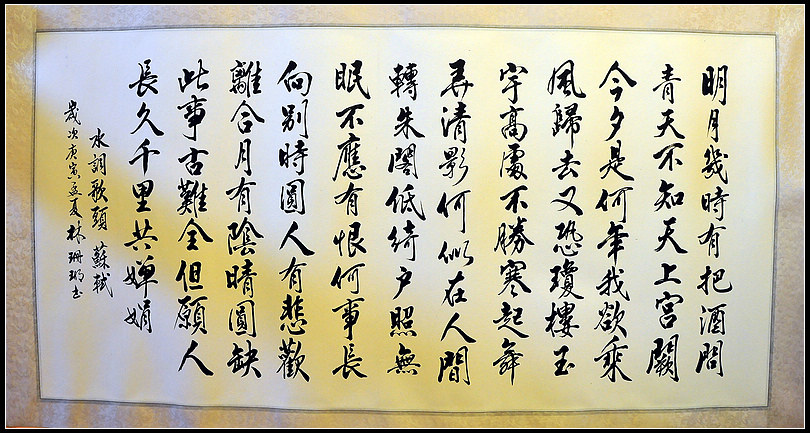 明月幾時有把酒問
青天不知天上宮闕
今夕是何年我欲乘
風歸去又恐瓊樓玉
宇高處不勝寒起舞
弄清影何似在人間
轉朱閣低綺戶照無
眠不應有恨何事長
向別時圓人有悲歡
離合月有陰晴圓缺
此事古難全但願人
長久千里共嬋娟
水調歌頭 蘇軾
歲次庚寅孟夏林珊書